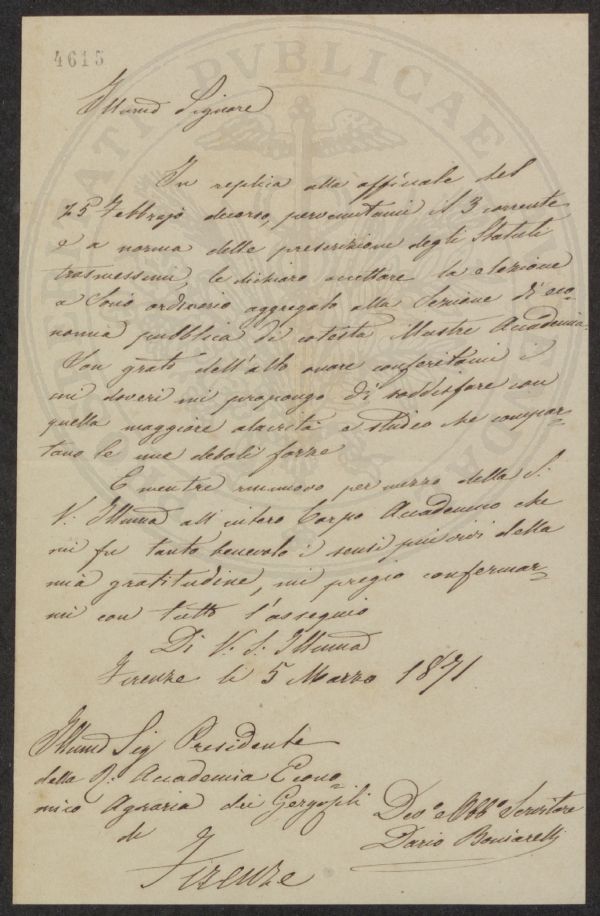 4615
PVBLICAE
Illumo Signore
In replica alla officiale del
25 Febbrajo decorso, pervenutami il 3 corrente
e a norma delle prescrizioni degli Statuti
trasmessimi, le dichiaro accettare la elezione
a Socio ordinario aggregato alla Sezione di eco=
nomia pubblica di cotesta illustre Accademia.
Son grato dell'alto onore conferitomi i
miei doveri mi propongo di soddisfare con
quella maggiore alacrità e studio che compor=
tano le mie deboli forze
E mentre rinnuovo per mezzo della S.
V. Illuma all'intero Corpo Accademico che
mi fu tanto benevolo i sensi più vivi della
mia gratitudine, mi pregio confermar=
mi con tutto l'ossequio
Di V. S. Illuma
Firenze li 5 Marzo 1871
Illumo Sig Presidente
della R. Accademia Econo=
mico Agraria dei Gergofili
di
Firenze
Devo e Obbo Servitore
Dario